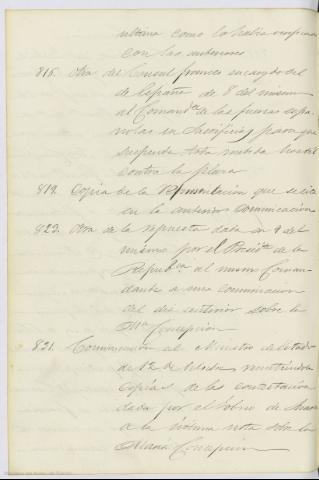 ultima como lo habia verificado
con las anteriores
816. Otra del Consul frances encargado del
de España de 8 del mismo
al Comandte de las fuerzas espa
ñolas en para que
suspenda toda medida hostil
contra la plaza
819. Copia de la que se cita
en la anterior comunicacion
823. Otra de la repuesta dada en 9 del
mismo por el Presidte de la
Republica al mismo Coman
dante a una comunicacion
del dia anterior sobre la
Maa Concepcion
821. Comunicacion al Ministro de Estado
de 12 de Octubre remitiendole
Copias de la contestacion
dada por el Gobno de
a la nota sobre la
Maria Concepcion